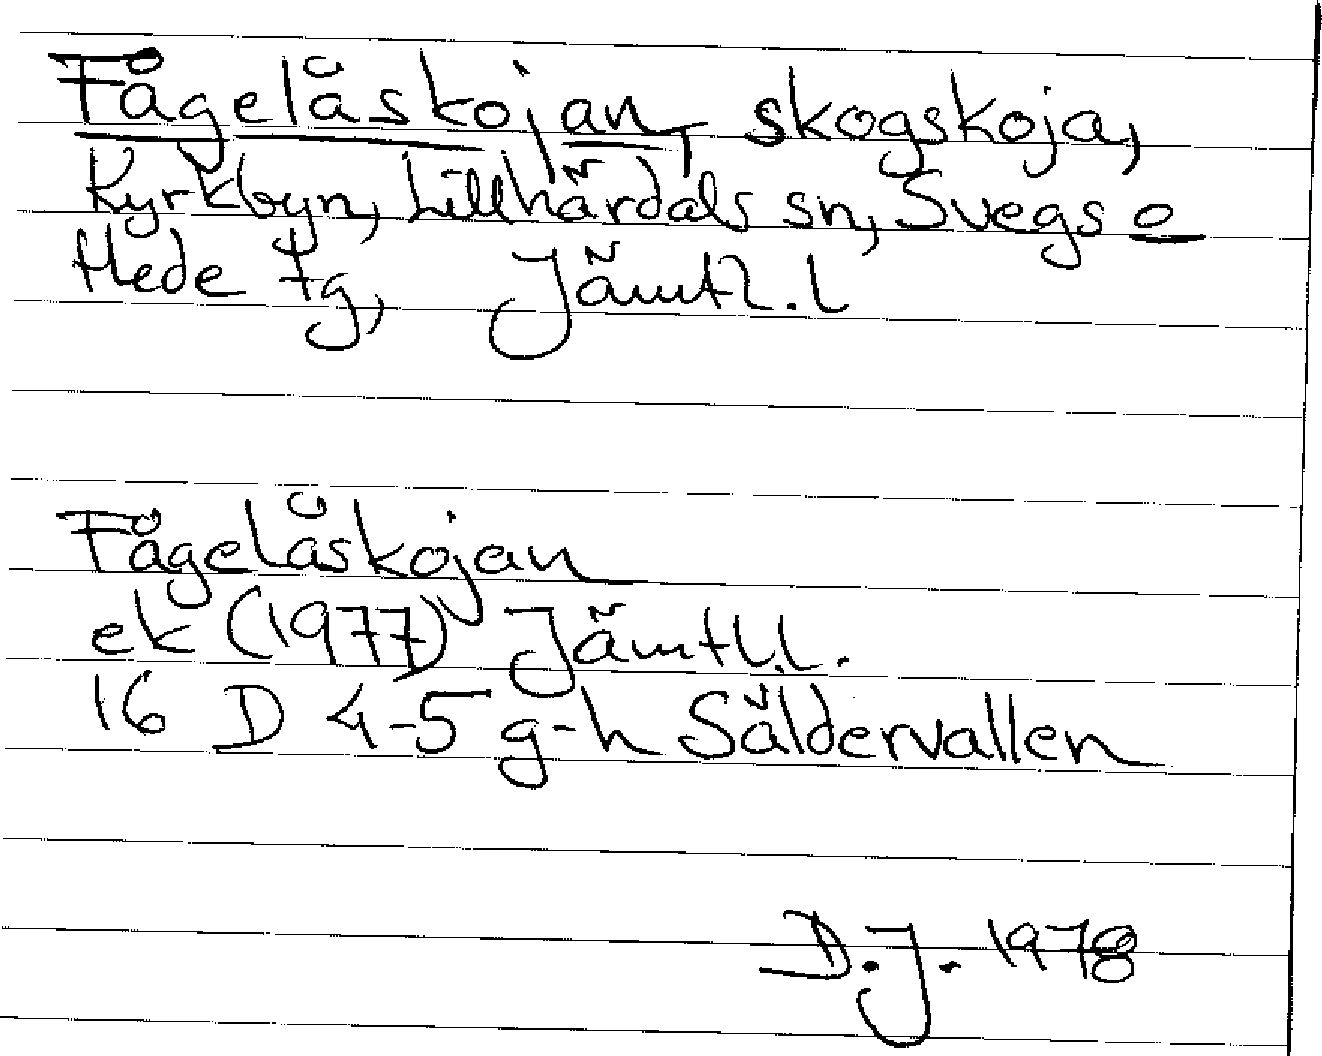 Fågelåskojan, skogskoja,
Kyrkbyn, Lillhärdals sn, Svegs o
Hede tg, Jämtl. l
Fågelåskojan
ek (1977) Jämtl.l.
16 D 4-5 g-h Säldervallen
D.J. 1978